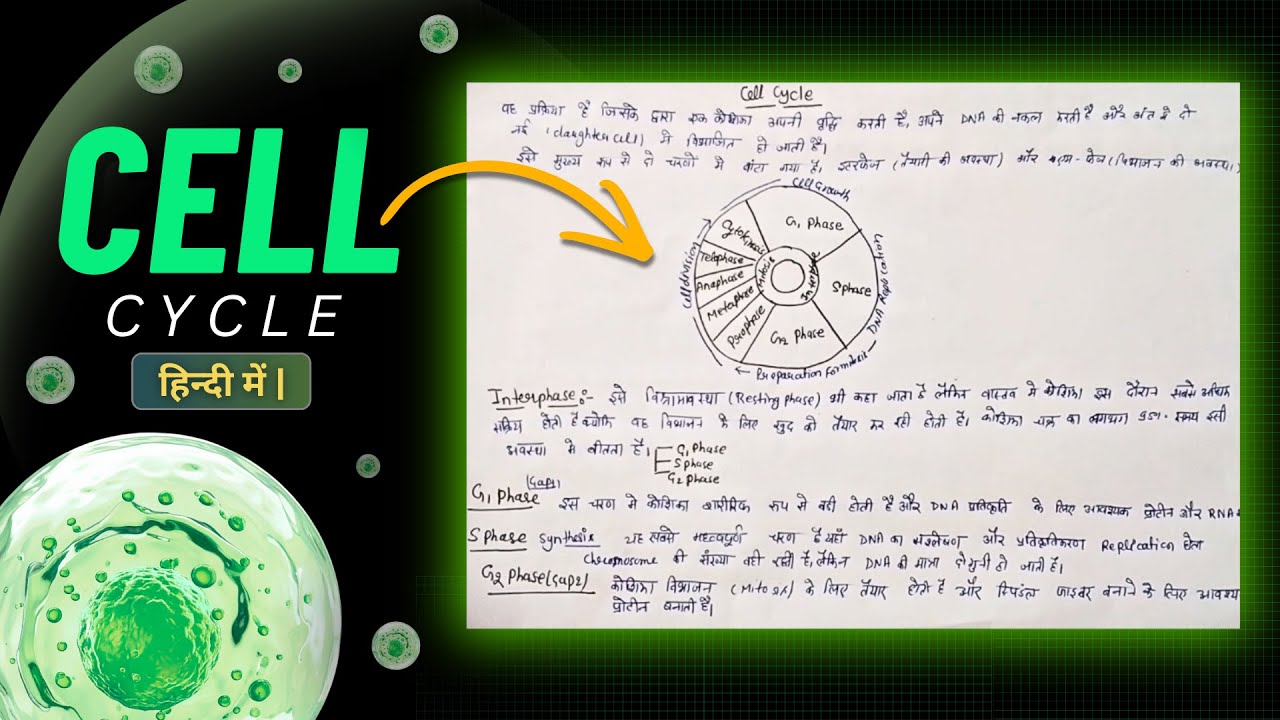 CELL
CYCLE
हिन्दी में |
Cell Cycle
वह प्रक्रिया है जिसके द्वारा एक कोशिका अपनी वृद्धि करती है, अपने DNA की नकल करती है और अंत मे दो
नई (daughter cell) में विभाजित हो जाती है।
इसे मुख्य रूप से दो चरणों में बांटा गया है। इंटरफेज (तैयारी की अवस्था) और एम-फेज (विभाजन की अवस्था)
Cell Growth
G1 Phase
Cytokinesis
Telophase
Anaphase
Metaphase
Prophase
Mitosis
Interphase
S Phase
G2 Phase
Cell division
DNA Replication
Preparation for mitosis
Interphase:- इसे विश्रामावस्था (Resting phase) भी कहा जाता है लेकिन वास्तव मे कोशिका इस दौरान सबसे अधिक
सक्रिय होती है क्योंकि वह विभाजन के लिए खुद को तैयार कर रही होती है। कोशिका चक्र का लगभग 95%. समय इसी
अवस्था मे बीतता है।
G1 Phase
S phase
G2 phase
(Gap1)
G1 Phase इस चरण मे कोशिका शारीरिक रूप से बडी होती है और DNA प्रतिकृति के लिए आवश्यक प्रोटीन और RNA
S Phase Synthesis यह सबसे महत्वपूर्ण चरण है यहाँ DNA का संश्लेषण और प्रतिकृतिकरण Replication होता
Chromosome की संख्या वही रहती है, लेकिन DNA की मात्रा दोगुनी हो जाती है।
G2 Phase (Gap2) कोशिका विभाजन (Mitosis) के लिए तैयार होती है और स्पिंडल फाइबर बनाने के लिए आवश्य
प्रोटीन बनाती है।